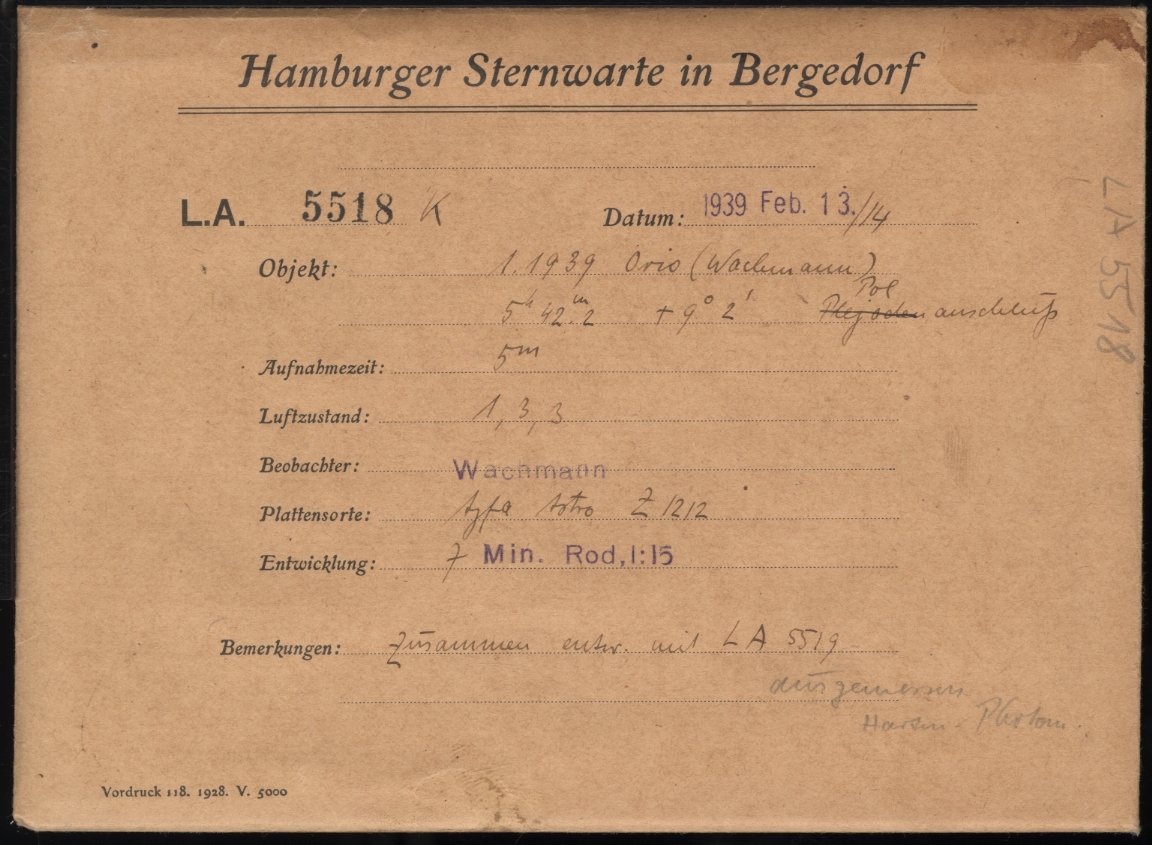 Hamburger Sternwarte in Bergedorf
L.A. 5518 K Datum: 1939 Feb. 13./14
Objekt: 1.1939 Orio (Wachmann)
Pol
5h 42.m2 + 9° 2' Plejaden anschluß
Aufnahmezeit: 5m
Luftzustand: 1, 3, 3
Beobachter: Wachmann
Plattensorte: Agfa Astro Z 1212
Entwicklung: 7 Min. Rod, 1:15
Bemerkungen: Zusammen entw. mit LA 5519
ausgemessen
Hartm. Photom.
Vordruck 118. 1928. V. 5000
LA 5518